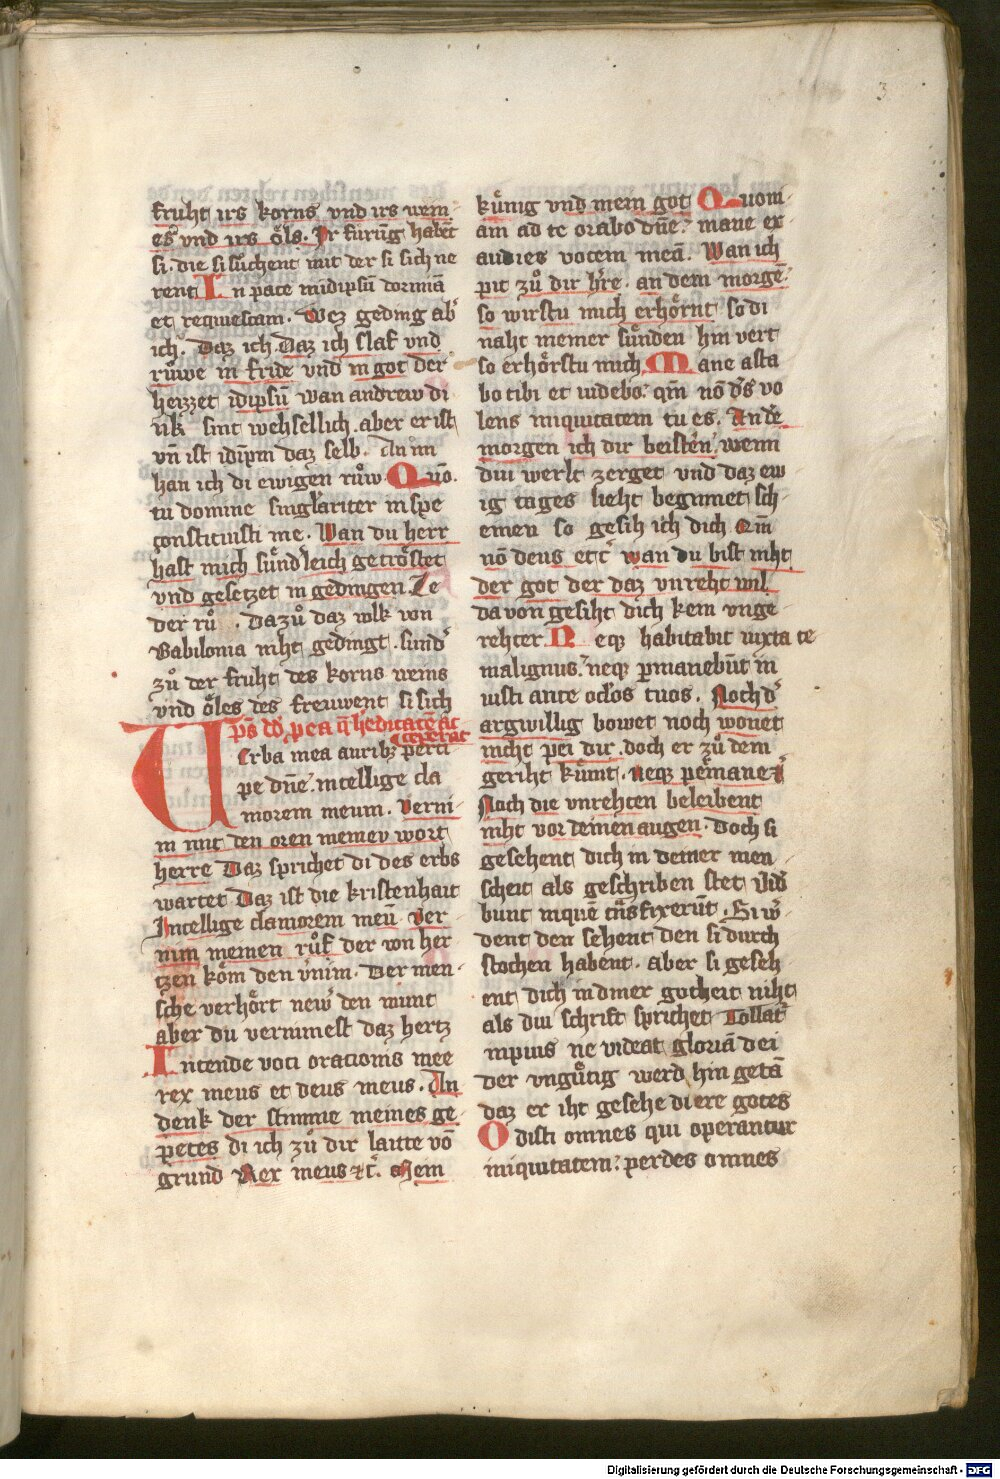 3
fruht irs korns vnd irs wein-
es vnd irs öls. Ir fúrūg habēt
si. die si suchent mit der si sich ne
rent In pace in idipsū dormiā
et requiescam. Wez geding ab̾
ich. Daz ich Daz ich slaf vnd
růwe in fride vnd in got der
heizzet idipsū wan andrew di
nk̾ sint wehsellich. aber er ist
vn̄ ist idip̄m daz selb. An im
han ich di ewigen růw. Qm̄o.
tu domine singl̾ariter in spe
constituisti me. Wan du herr
hast mich sůnd̾leich getröstet
vnd gesetzet in gedingen. Ze
der rů. Dazů daz volk von
Babilonia niht gedingt. sund̾
zů der fruht des korns weins
vnd öles des freuwent si sich
ps̄ dd̄. p ea q̄ h̾editatē ac
ceperat
Verba mea aurib; perci
pe dn̄e. intellige cla
morem meum. Verni-
m mit den oren meinev wort
herre Daz sprichet di des erbs
wartet Daz ist die kristenhait
Intellige clamorem meū Ver
nim meinen růf der von her
tzen köm den v̾nim. Der men-
sche verhört new̾ den munt
aber du vernimest daz hertz
Intende voci oracionis mee
rex meus et deus meus. An
denk der stimme meines ge-
petes di ich zů dir lautte vō
grund Rex meus etc̄. Mein
kůnig vnd mein got Quom-
am ad te orabo dn̄e. mane ex
audies vocem meā. Wan ich
pit zů dir h̾re. an dem morgē.
so wirstu mich erhörnt so di
naht meiner sůnden hin vert
so erhörstu mich Mane asta
bo tibi et videbo. qm̄ nō d̾s vo
lens iniquitatem tu es. An de
morgen ich dir beistēn. wenn
diu werlt zerget vnd daz ew
ig tages lieht beginnet sch-
einen so gesih ich dich Qm̄
nō deus etc̄ wan du bist niht
der got der daz vnreht wil
da von gesiht dich kein vnge-
rehter. Neq; habitabit iuxta te
malignus. neq; p̄manebūt in
iusti ante oc̾los tuos. Noch d̾
argwillig bowet noch wonet
nicht pei dir. doch er zů dem
geriht kůmt. Neq; permaner̄
Noch die vnrehten beleibent
niht vor deinen augen. Doch si
gesehent dich in deiner men-
scheit als geschriben stet Vid̾
bunt in quē tn̄sfixerūt. Si w̾-
dent den sehent den si durch
stochen habent. aber si geseh
ent dich in diner gotheit niht
als diu schrift sprichet Tollat̾
inpius ne videat gloriā dei
der vngůtig werd hin getā
daz er iht gesehe di ere gotes
Odisti omnes qui operantur
iniquitatem. perdes omnes
Digitalisierung gefördert durch die Deutsche Forschungsgemeinschaft - DFG